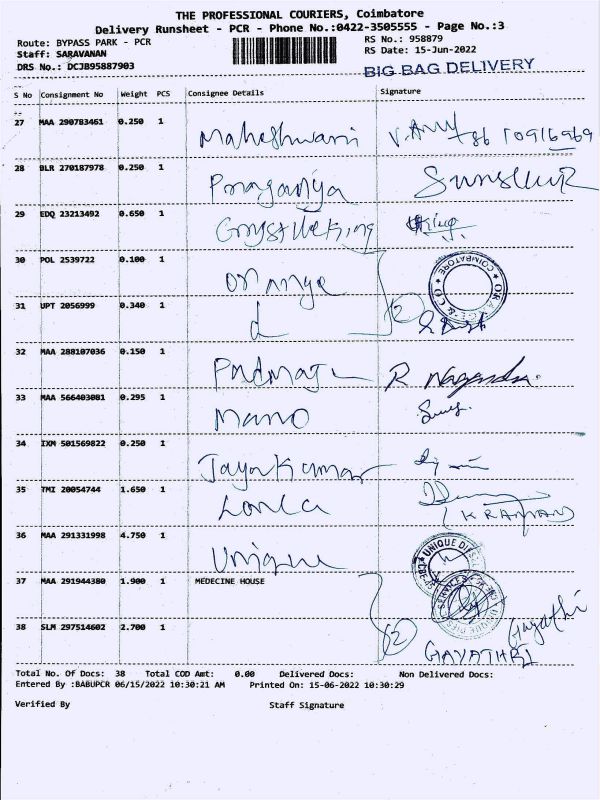 THE PROFESSIONAL COURIERS, Coimbatore
Delivery Runsheet - PCR - Phone No.:0422-3505555 - Page No.:3
Route: BYPASS PARK - PCR
RS No.: 958879
Staff: SARAVANAN
RS Date: 15-Jun-2022
DRS No.: DCJB95887903
BIG BAG DELIVERY
S No Consignment No Weight PCS Consignee Details Signature
27 MAA 290783461 0.250 1 Maheshwari
28 BLR 270187978 0.250 1
29 EDQ 23213492 0.650 1
30 POL 2539722 0.100 1 Orange COIMBATORE
31 UPT 2056999 0.340 1 2
32 MAA 288107036 0.150 1 R Nagendra.
33 MAA 566403081 0.295 1 Mano
34 IXM 501569822 0.250 1 Jaya Kumar
35 TMI 20054744 1.650 1
36 MAA 291331998 4.750 1 Unique UNIQUE DIESEL
37 MAA 291944380 1.900 1 MEDECINE HOUSE SERVICES
38 SLM 297514602 2.700 1 2 Gayathri
GAYATHRI
Total No. Of Docs: 38 Total COD Amt: 0.00 Delivered Docs: Non Delivered Docs:
Entered By :BABUPCR 06/15/2022 10:30:21 AM Printed On: 15-06-2022 10:30:29
Verified By Staff Signature